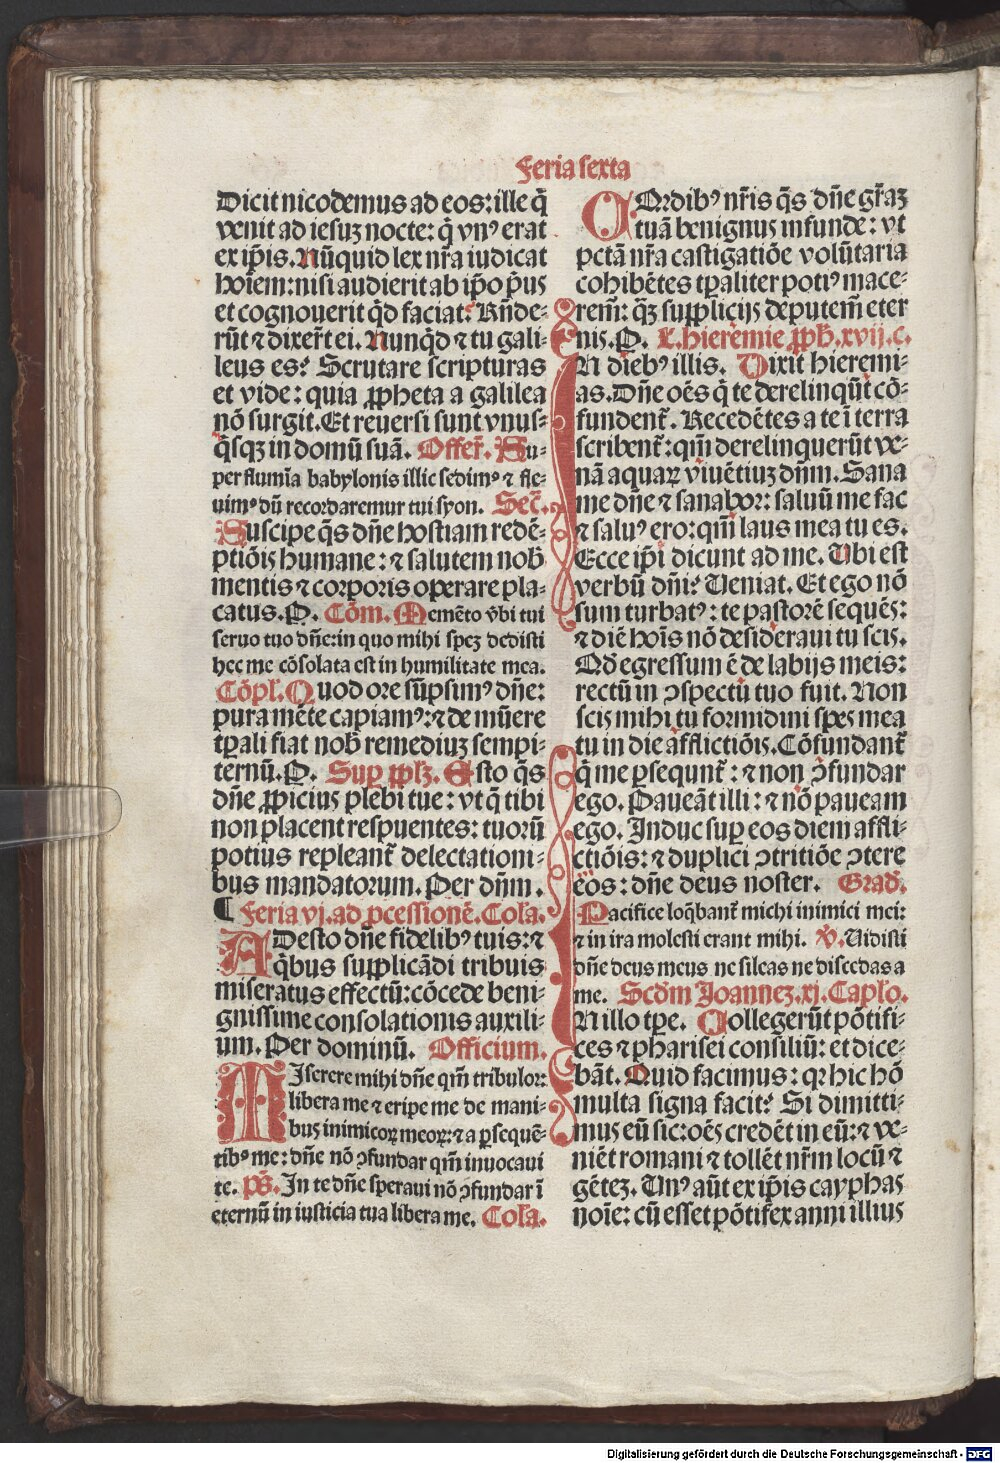 Feria sexta
Dicit nicodemus ad eos: ille q̃
venit ad iesuʒ nocte: q̃ vnꝰ erat
ex ip̃is. Nũquid lex nr̃a iudicat
hoĩem: nisi audierit ab ip̃o p̃us
et cognouerit q̃d faciat? Rñde-
rũt ⁊ dixer̃t ei. Nunq̃d ⁊ tu gali-
leus es? Scrutare scripturas
et vide: quia ꝓpheta a galilea
nõ surgit. Et reuersi sunt vnus-
q̃sqʒ in domũ suã. Offer̃. Su-
per flumĩa babylonis illic sedimꝰ ⁊ fle-
uimꝰ dũ recordaremur tui syon. Sec̃.
Suscipe q̃s dñe hostiam redẽ-
ptiõis humane: ⁊ salutem nob̃
mentis ⁊ corporis operare pla-
catus. P. Cõm. Memẽto v̾bi tui
seruo tuo dñe: in quo mihi speʒ dedisti
hec me cõsolata est in humilitate mea.
Cõpl̃. Quod ore sũpsimꝰ dñe:
pura mẽte capiamꝰ: ⁊ de mũere
tꝑali fiat nob̃ remediuʒ sempi-
ternũ. P. Suꝑ ꝓlʒ. Esto q̃s
dñe ꝓpicius plebi tue: vt q̃ tibi
non placent respuentes: tuorũ
potius repleant̃ delectationi-
bus mandatorum. Per dñm.
¶ Feria vj. ad ꝓcessionẽ. Col̃a.
ADesto dñe fidelibꝰ tuis: ⁊
q̃bus supplicãdi tribuis
miseratus effectũ: cõcede beni-
gnissime consolationis auxili-
um. Per dominũ. Officium.
MIserere mihi dñe qm̃ tribulor:
libera me ⁊ eripe me de mani-
bus inimicoꝝ meoꝝ: ⁊ a ꝑsequẽ-
tibꝰ me: dñe nõ ꝯfundar qm̃ inuocaui
te. ps̃. In te dñe speraui nõ ꝯfundar ĩ
eternũ in iusticia tua libera me. Col̃a.
COrdibꝰ nr̃is q̃s dñe gr̃aʒ
tuã benignus infunde: vt
pctã nr̃a castigatiõe volũtaria
cohibẽtes tꝑaliter potiꝰ mace-
rem̃: q̃ʒ supplicijs deputem̃ eter
nis. P. L. hieremie ꝓph̃. xvij. c.
IN diebꝰ illis. Dixit hieremi-
as. Dñe oẽs q̃ te derelinqũt cõ-
fundent̃. Recedẽtes a te ĩ terra
scribent̃: qm̃ derelinquerũt ve-
nã aquaꝝ viuẽtiuʒ dñm. Sana
me dñe ⁊ sanabor: saluũ me fac
⁊ saluꝰ ero: qm̃ laus mea tu es.
Ecce ip̃i dicunt ad me. Ubi est
verbũ dñi? Ueniat. Et ego nõ
sum turbatꝰ: te pastorẽ sequẽs:
⁊ diẽ hoĩs nõ desideraui tu scis.
Qd̃ egressum ẽ de labijs meis:
rectũ in ꝯspectu tuo fuit. Non
scis mihi tu formidini spes mea
tu in die afflictiõis. Cõfundant̃
q̃ me ꝑsequnt̃: ⁊ non ꝯfundar
ego. Paueãt illi: ⁊ nõ paueam
ego. Induc suꝑ eos diem affli-
ctiõis: ⁊ duplici ꝯtritiõe ꝯtere
eos: dñe deus noster. Grad̃.
Pacifice loq̃bant̃ michi inimici mei:
⁊ in ira molesti erant mihi. V̾. Uidisti
dñe deus meus ne sileas ne discedas a
me. Scd̃m Joanneʒ. xj. Capl̃o.
IN illo tꝑe. Collegerũt põtifi-
ces ⁊ pharisei consiliũ: et dice-
bãt. Quid facimus: qꝛ hic hõ
multa signa facit? Si dimitti-
mus eũ sic: oẽs credẽt in eũ: ⁊ ve-
niẽt romani ⁊ tollẽt nr̃m locũ ⁊
gẽteʒ. Unꝰ aũt ex ip̃is cayphas
noĩe: cũ esset põtifex anni illius
Digitalisierung gefördert durch die Deutsche Forschungsgemeinschaft - DFG